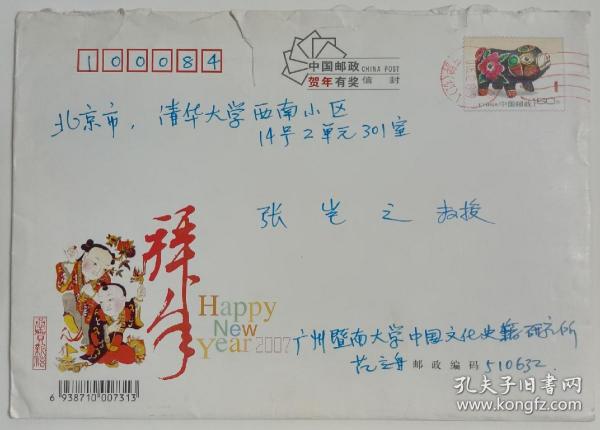 100084
中国邮政 CHINA POST
贺年有奖 信 封
北京市，清华大学西南小区
14号2单元301室
张岂之 教授
拜年
Happy
New
Year 2007
广州暨南大学中国文化史籍研究所
范立舟 邮政编码 510632
6 938710 007313
孔夫子旧书网
www.kongfz.com